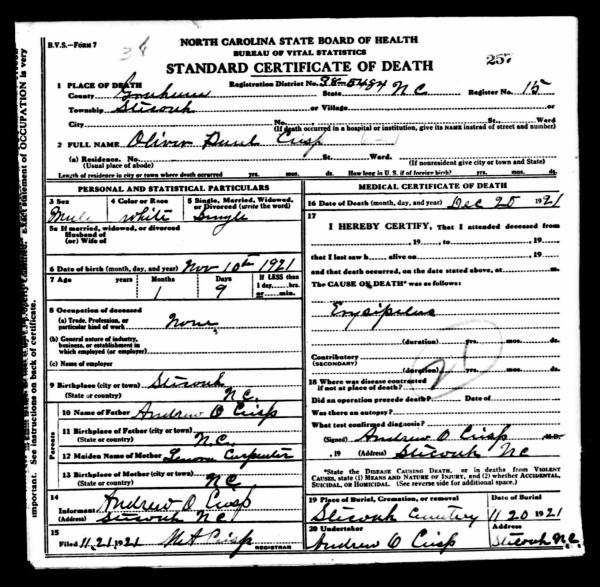 B.V.S.—FORM 7
NORTH CAROLINA STATE BOARD OF HEALTH
BUREAU OF VITAL STATISTICS
STANDARD CERTIFICATE OF DEATH
257
1 PLACE OF DEATH Registration District No. 38-5484 Register No. 15
County Graham State N C
Township Stecoah or Village
City No. St. Ward
(If death occurred in a hospital or institution, give its NAME instead of street and number)
2 FULL NAME Oliver Crisp
(a) Residence. No. St. Ward.
(Usual place of abode) (If nonresident give city or town and State)
Length of residence in city or town where death occurred yrs. mos. ds. How long in U. S. if of foreign birth? yrs. mos. ds.
PERSONAL AND STATISTICAL PARTICULARS
3 Sex 4 Color or Race 5 Single, Married, Widowed,
or Divorced (write the word)
Male white Single
5a If married, widowed, or divorced
Husband of
(or) Wife of
6 Date of birth (month, day, and year) Nov 10th 1921
7 Age years Months Days If LESS than
1 day, hrs.
1 9 or min.
8 Occupation of deceased
(a) Trade, Profession, or
particular kind of work None
(b) General nature of industry,
business, or establishment in
which employed (or employer)
(c) Name of employer
9 Birthplace (city or town) Stecoah
(State or country) N C
Parents
10 Name of Father Andrew O Crisp
11 Birthplace of Father (city or town)
(State or country) N.C.
12 Maiden Name of Mother Carpenter
13 Birthplace of Mother (city or town)
(State or country) N C
14
Informant Andrew O Crisp
(Address) Stecoah N C
15
Filed 11.21, 1921 Crisp
REGISTRAR
MEDICAL CERTIFICATE OF DEATH
16 Date of Death (month, day, and year) Dec 20 1921
17
I HEREBY CERTIFY, That I attended deceased from
, 19 , to , 19
that I last saw h alive on , 19
and that death occurred, on the date stated above, at m.
The CAUSE OF DEATH* was as follows:
Erysipelas
(duration) yrs. mos. ds.
Contributory
(SECONDARY)
(duration) yrs. mos. ds.
18 Where was disease contracted
if not at place of death?
Did an operation precede death? Date of
Was there an autopsy?
What test confirmed diagnosis?
(Signed) Andrew O Crisp M.D.
, 19 (Address) Stecoah N C
*State the DISEASE CAUSING DEATH, or in deaths from VIOLENT
CAUSES, state (1) MEANS AND NATURE OF INJURY, and (2) whether ACCIDENTAL,
SUICIDAL, OR HOMICIDAL. (See reverse side for additional space.)
19 Place of Burial, Cremation, or removal Date of Burial
Stecoah Cemetery 11 20 1921
20 Undertaker Address
Andrew O Crisp Stecoah N.C.
important. See instructions on back of certificate.
Exact statement of OCCUPATION is very